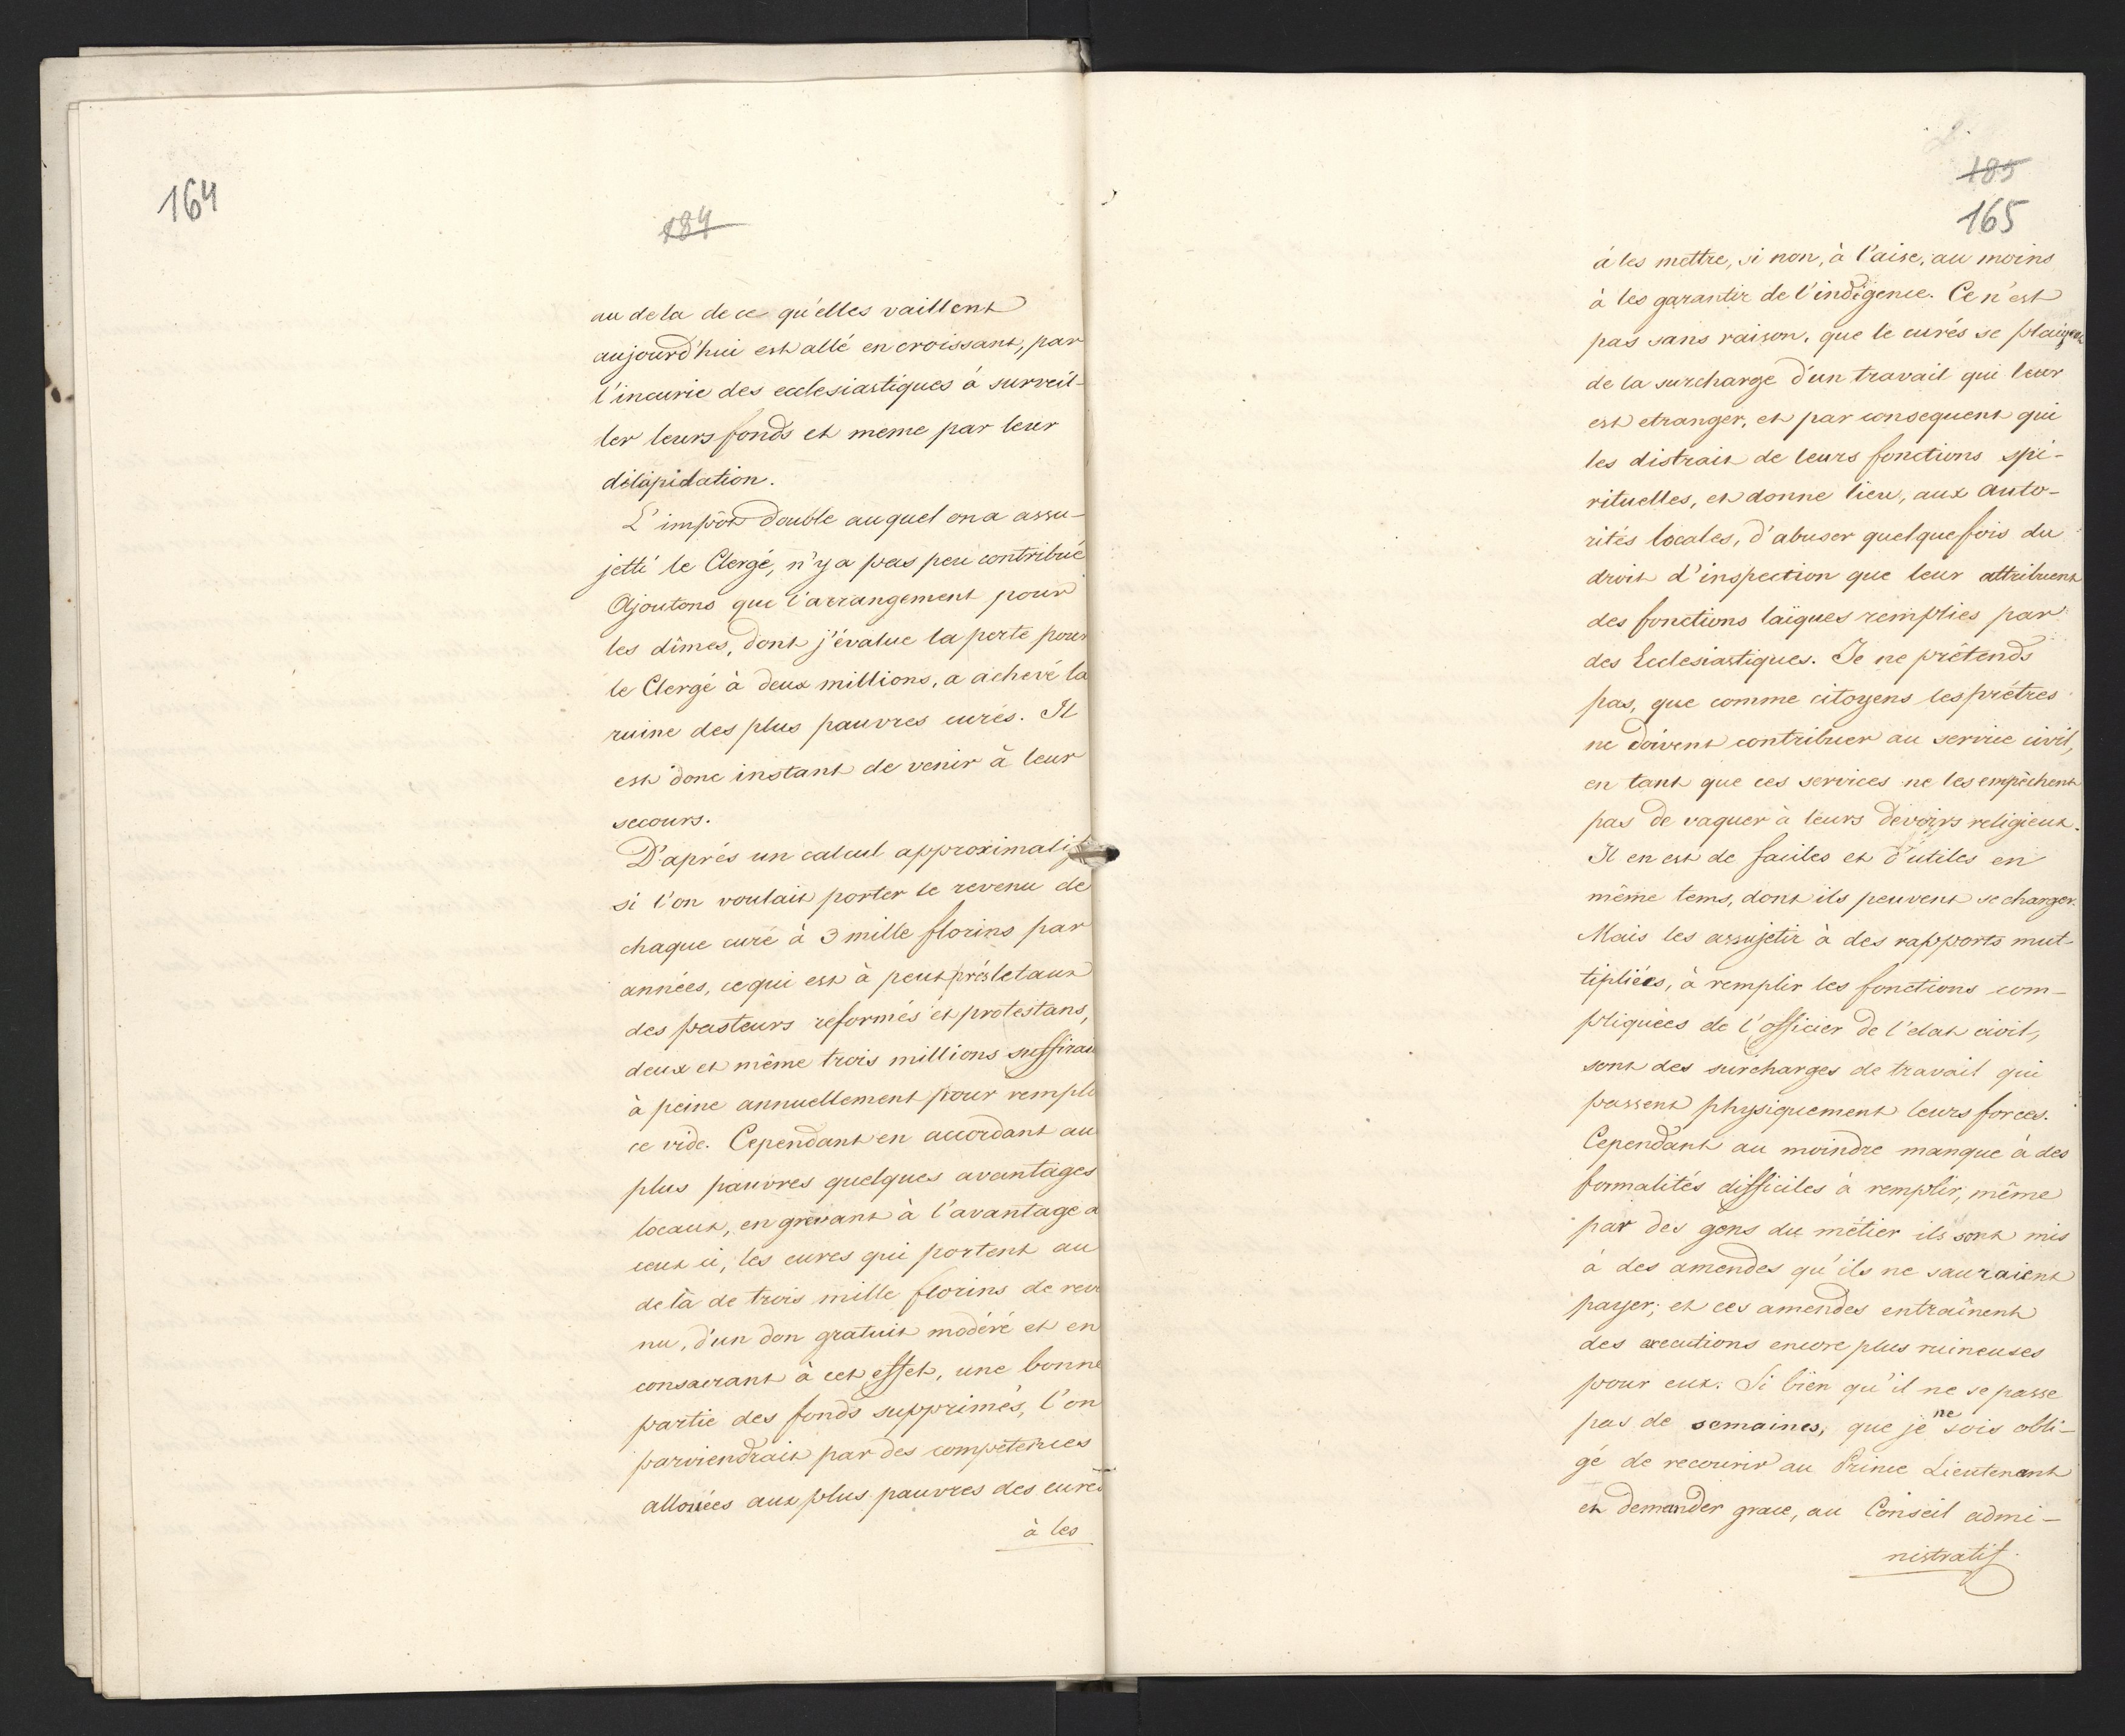 164
184
au de la de ce qu'elles vaillent
aujourd'hui est allé en croissant, par
l'incurie des ecclesiastiques á surveil-
ler leurs fonds et meme par leur
dilapidation.
L'impôt double auquel on a assu-
jetti le Clergé, n'y a pas peu contribué
Ajoutons que l'arrangement pour
les dîmes, dont j'évalue la perte pour
le Clergé à deux millions, a achevé la
ruine des plus pauvres curés. Il
est donc instant de venir à leur
secours.
D'aprés un calcul approximatif
si l'on voulait porter le revenu de
chaque curé à 3 mille florins par
années, ce qui est à peux prés le taux
des pasteurs reformés et protestans,
deux et même trois millions suffirai
à peine annuellement pour rempli
ce vide. Cependant en accordant au
plus pauvres quelques avantages
locaux, en grevant à l'avantage d
ceux ci, les cures qui portent au
delà de trois mille florins de reve
nu, d'un don gratuit modéré et en
consacrant à cet effet, une bonne
partie des fonds supprimés, l'on
parviendrait par des compétences
allouées aux plus pauvres des curés
à les
185
165
á les mettre, si non, à l'aise, au moins
à les garantir de l'indigence. Ce n'est
pas sans raison, que le curés se plaignent
de la surcharge d'un travail qui leur
est etranger, et par consequent qui
les distrait de leurs fonctions spi-
rituelles, et donne lieu, aux auto-
rités locales, d'abuser quelque fois du
droit d'inspection que leur attribuent
des fonctions laïques remplies par
des Ecclesiastiques. Je ne prétends
pas, que comme citoyens les prétres
ne doivent contribuer au service civil,
en tant que ces services ne les empêchent
pas de vaquer à leurs devoirs religieux.
Il en est de faciles et d'utiles en
même tems, dont ils peuvent se charger.
Mais les assujetir à des rapports mul-
tipliés, à remplir les fonctions com-
pliquées de l'officier de l'etat civil,
sont des surcharges de travail qui
passent physiquement leurs forces.
Cependant au moindre manque à des
formalités difficiles à remplir, même
par des gens du métier ils sont mis
à des amendes qu'ils ne sauraient
payer; et ces amendes entraînent
des executions encore plus ruineuses
pour eux. Si bien qu'il ne se passe
pas de semaines, que je ne sois obli-
gé de recourir au Prince Lieutenant
et demander grace, au Conseil admi-
nistratif